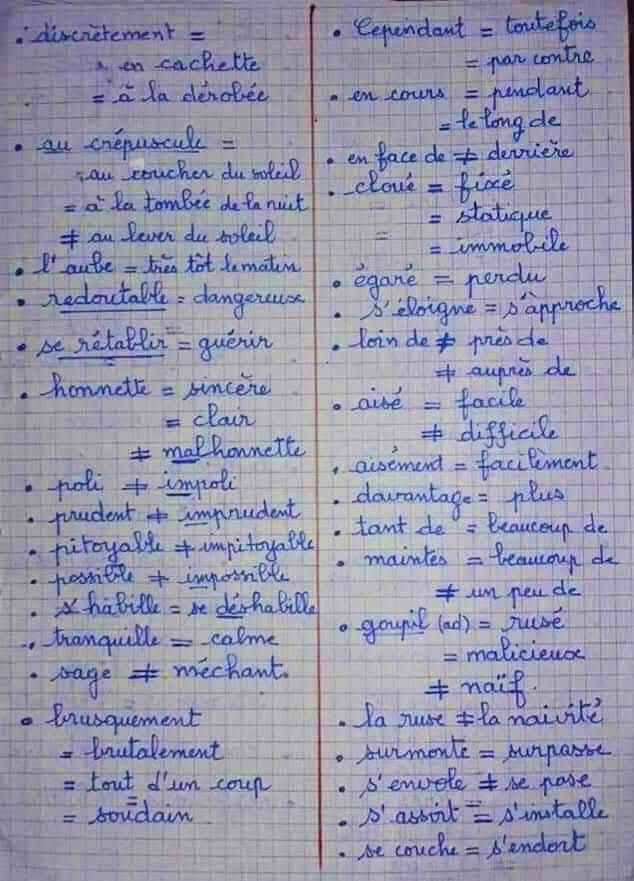 • discrètement =
= en cachette
= à la dérobée
• au crépuscule =
= au coucher du soleil
= à la tombée de la nuit
≠ au lever du soleil
• l'aube = très tôt le matin
• redoutable = dangereux
• se rétablir = guérir
• honnette = sincère
= clair
≠ malhonnette
• poli ≠ impoli
• prudent ≠ imprudent
• pitoyable ≠ impitoyable
• possible ≠ impossible
• s'habille = se déshabille
• tranquille = calme
• sage ≠ méchant.
• brusquement
= brutalement
= tout d'un coup
= soudain
• Cependant = toutefois
= par contre
• en cours = pendant
= le long de
• en face de ≠ derrière
• cloué = fixé
= statique
= immobile
• égaré = perdu
• s'éloigne = s'approche
• loin de ≠ près de
≠ auprès de
• aisé = facile
≠ difficile
• aisément = facilement
• davantage = plus
• tant de = beaucoup de
• maintes = beaucoup de
≠ un peu de
• goupil (ad) = rusé
= malicieux
≠ naïf.
• la ruse ≠ la naivité
• surmonte = surpasse
• s'envole ≠ se pose
• s'assoit = s'installe
• se couche = s'endort